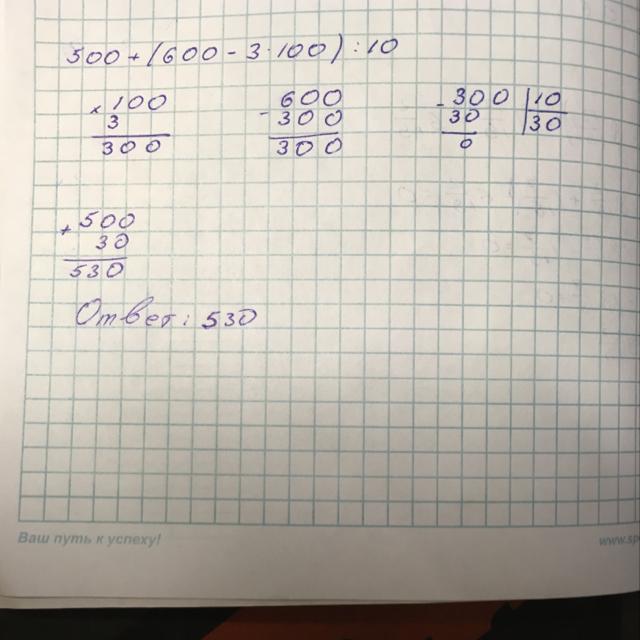 500+(600-3·100):10
× 100
3
300
- 600
300
300
- 300 | 10
30 | 30
0
+ 500
30
530
Ответ: 530
Ваш путь к успеху!
www.sp